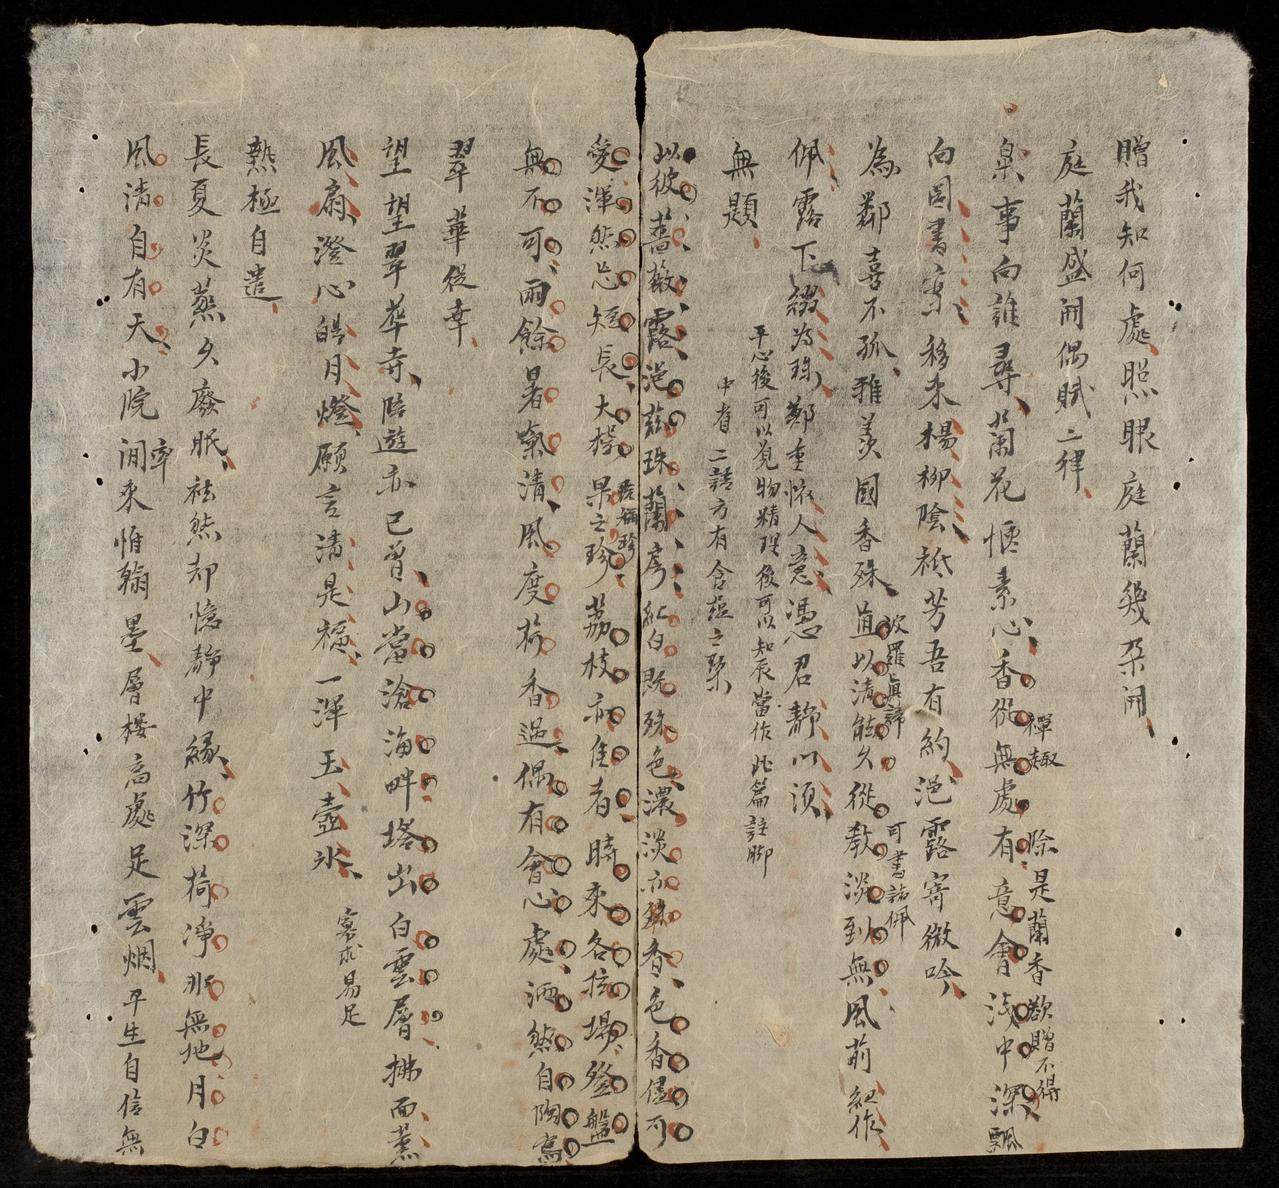 贈我知何處照眼庭蘭幾朶開
庭蘭盛開偶賦二律
事向誰尋蘭花愜素心香從無處有意會淺中深飄
禪趣
除是蘭香欲贈不得
向圖書京移來楊柳陰祗芳吾有約浥露寄微吟
為鄰喜不孤雅羨國香殊直以清能久從教淡到無風前紉作
波羅真諦
可書諸佩
佩露下綴為珠鄭重懷人意憑君靜以須
無題
平心後可以覓物精理後可以知辰當作此篇註脚
中有二語方有含蘊之槩
以彼薔薇露浥茲珠蘭房紅白既殊色濃淡亦殊香色香儘可
愛渾然忘短長大櫻果之珍荔枝亦佳者時來各擅場登盤
若稱珍
無不可雨餘暑氣清風度荷香過偶有會心處洒然自陶寫
翠華從幸
望望翠華寺陪遊亦已曾山當滄海畔塔出白雲層拂面薰
風扇澄心皓月燈願言清是福一渾玉壺冰
寡求易足
熱極自遣
長夏炎蒸久廢眠袪然却憶靜中緣竹深荷淨水無地月白
風清自有天小院閒來惟翰墨層樓高處足雲烟平生自信無
牽